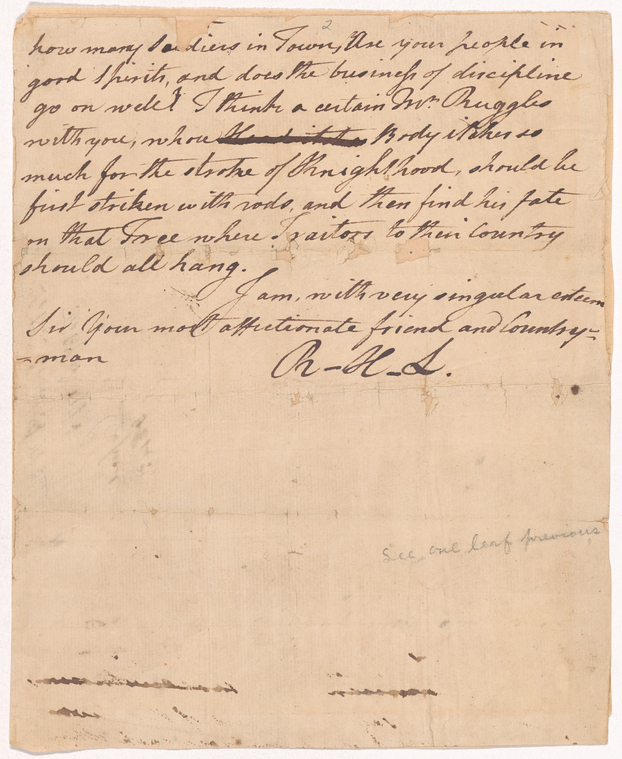 2
how many Soldiers in Town, Are your people in
good Spirits, and does the business of discipline
go on well? I think a certain Mr. Ruggles
with you, whose Body itches so
much for the stroke of Knighthood, should be
first striken with rods, and then find his fate
on that Tree where Traitors to their Country
should all hang.
I am, with very singular esteem
Sir Your most affectionate friend and Country-
-man
R-H-L.
See one leaf previous